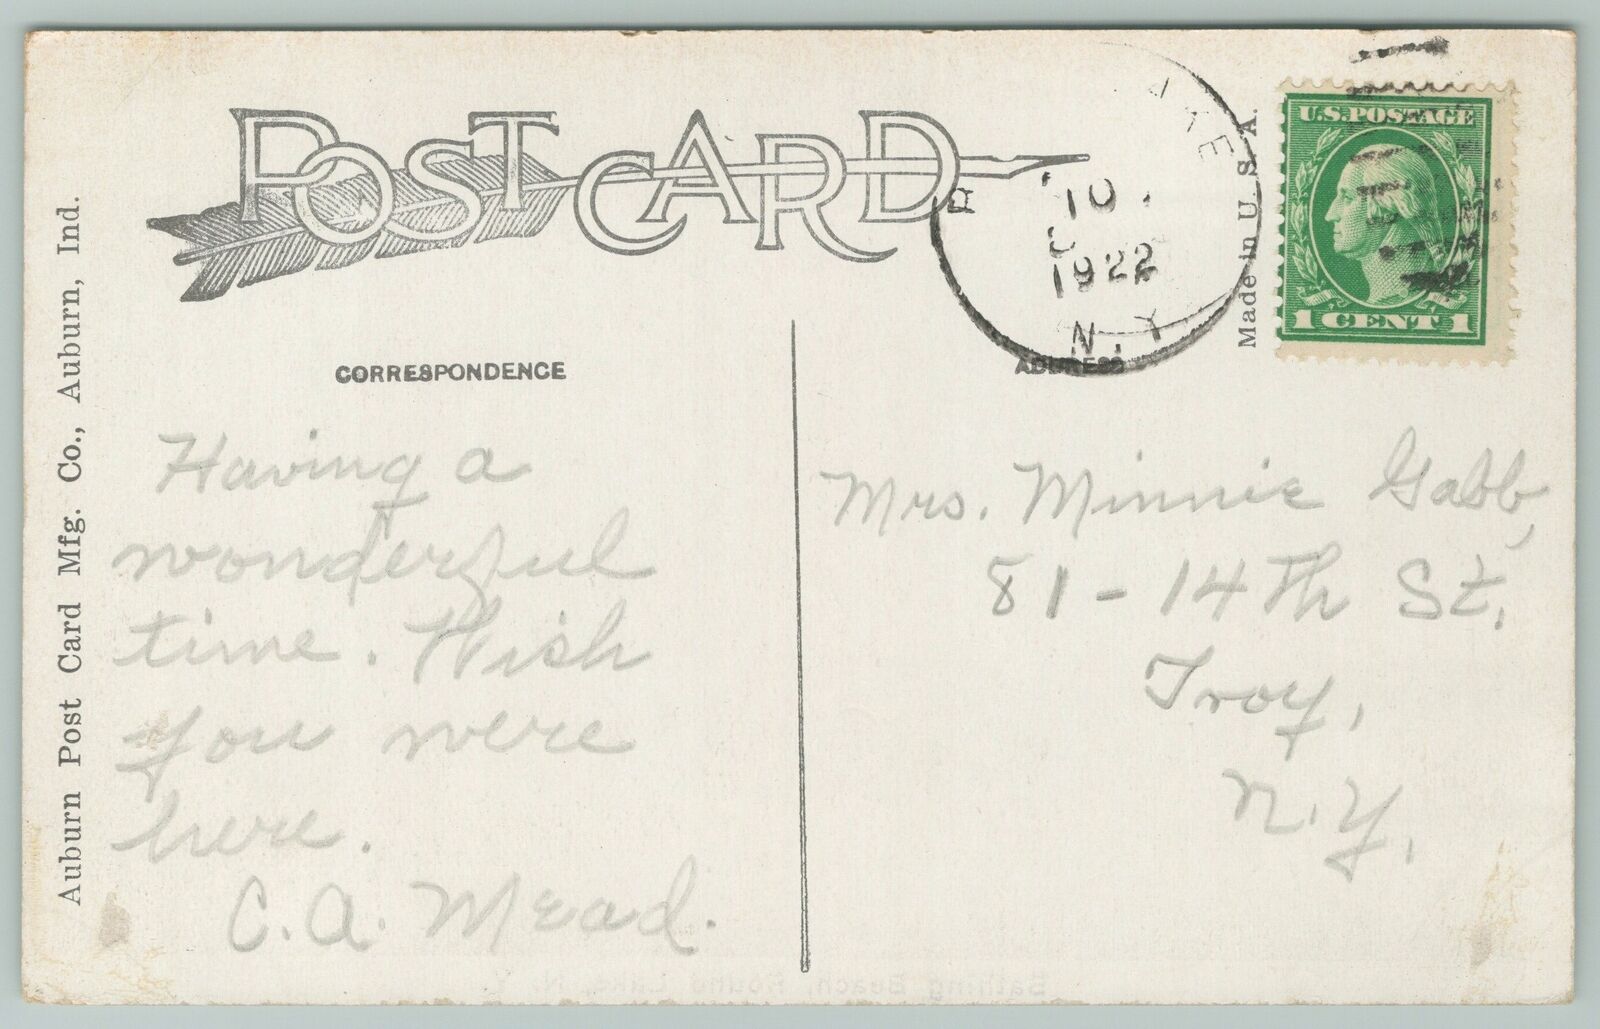 POST CARD
CORRESPONDENCE
Having a
wonderful
time. Wish
you were
here.
C. A. Mead.
Auburn Post Card Mfg. Co., Auburn, Ind.
10
1922
N.Y.
ADDRESS
Made in U. S. A.
U.S. POSTAGE
1 CENT 1
Mrs. Minnie Gabb,
81 - 14th St.
Troy,
N.Y.
Bathing Beach, Round Lake, N. Y.